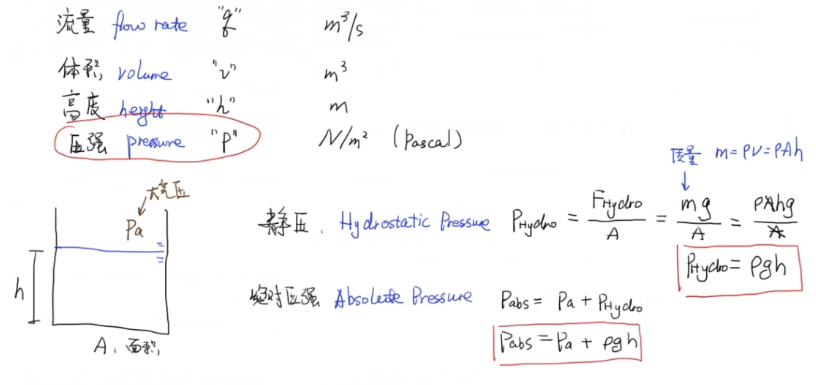 流量 flow rate "q" m³/s
体积 volume "v" m³
高度 height "h" m
压强 pressure "P" N/m² (Pascal)
质量 m = ρV = ρAh
大气压
Pa
静压. Hydrostatic Pressure P_Hydro = F_Hydro/A = mg/A = ρAhg/A
P_Hydro = ρgh
h
绝对压强 Absolute Pressure Pabs = Pa + P_Hydro
Pabs = Pa + ρgh
A. 面积